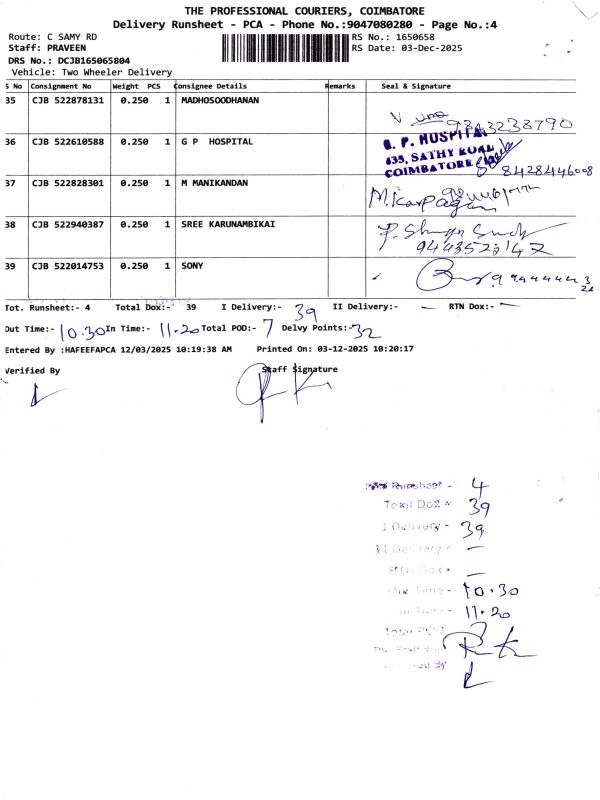 THE PROFESSIONAL COURIERS, COIMBATORE
Delivery Runsheet - PCA - Phone No.:9047080280 - Page No.:4
Route: C SAMY RD RS No.: 1650658
Staff: PRAVEEN RS Date: 03-Dec-2025
DRS No.: DCJB165065804
Vehicle: Two Wheeler Delivery
S No Consignment No Weight PCS Consignee Details Remarks Seal & Signature
35 CJB 522878131 0.250 1 MADHOSOODHANAN
9343238790
36 CJB 522610588 0.250 1 G P HOSPITAL
G. P. HOSPITAL
435, SATHY ROAD
COIMBATORE
8428446008
37 CJB 522828301 0.250 1 M MANIKANDAN
M. Karpagam
38 CJB 522940387 0.250 1 SREE KARUNAMBIKAI
9443523147
39 CJB 522014753 0.250 1 SONY
Tot. Runsheet:- 4 Total Dox:- 39 I Delivery:- 39 II Delivery:- — RTN Dox:- —
Out Time:- 10.30 In Time:- 11.20 Total POD:- 7 Delvy Points:- 32
Entered By :HAFEEFAPCA 12/03/2025 10:19:38 AM Printed On: 03-12-2025 10:20:17
Verified By Staff Signature
Runsheet - 4
Total Dox - 39
I Delivery - 39
II Delivery - —
RTN Dox - —
Out Time - 10.30
In Time - 11.20
Total POD